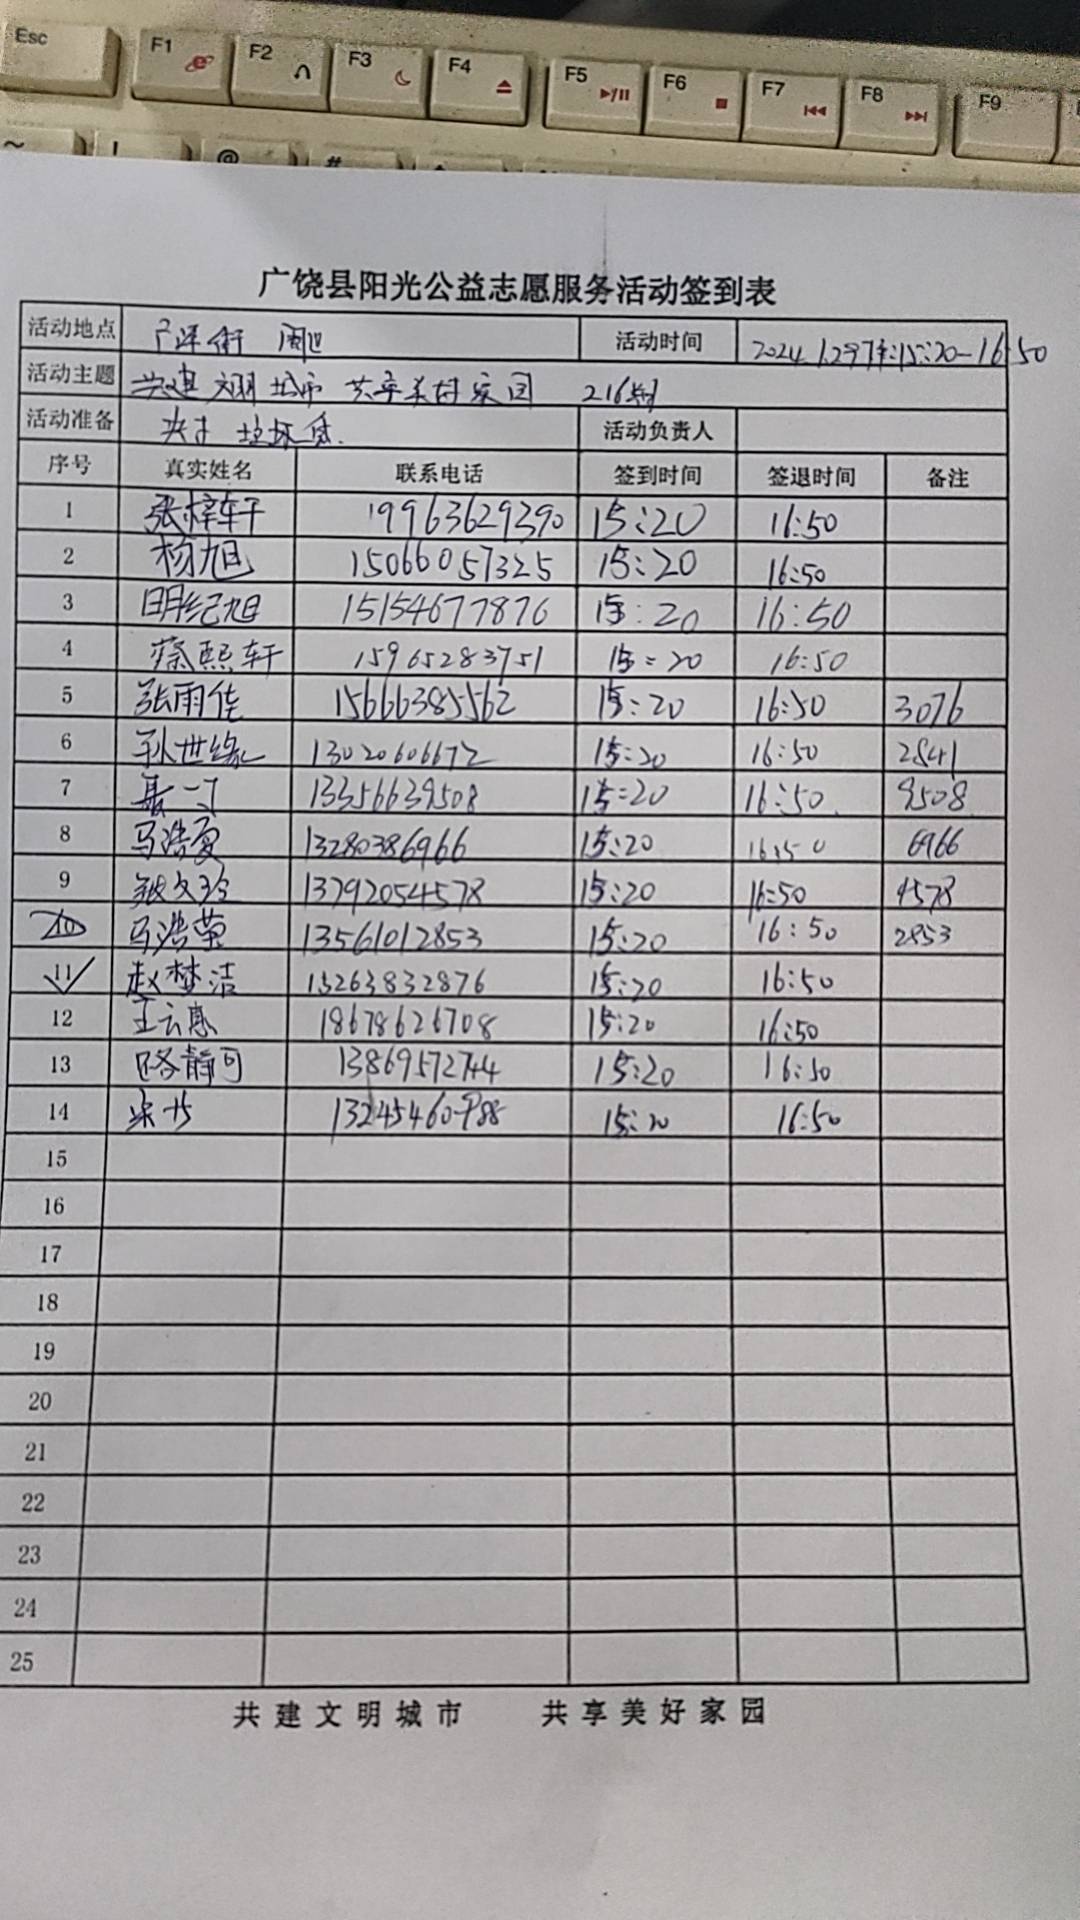 Esc F1 F2 F3 F4 F5 F6 F7 F8 F9
~ ! @ #
广饶县阳光公益志愿服务活动签到表
活动地点 周边 活动时间 15:20-16:50
活动主题 共建文明城市 共享美好家园 216期
活动准备 夹子 垃圾袋 活动负责人
序号 真实姓名 联系电话 签到时间 签退时间 备注
1 张梓轩 19963629390 15:20 16:50
2 杨旭 15066057325 15:20 16:50
3 明纪旭 15154677876 15:20 16:50
4 蔡熙轩 15965283751 15:20 16:50
5 张雨佳 15666385562 15:20 16:50 3076
6 孙世缘 13020606672 15:20 16:50 2841
7 聂一丁 13356639508 15:20 16:50 9508
8 马浩夏 13280386966 15:20 16:50 6966
9 13792054578 15:20 16:50 4578
10 马浩莹 13561012853 15:20 16:50 2853
11 赵梦洁 13263832876 15:20 16:50
12 王云惠 18678626708 15:20 16:50
13 路静可 15:20 16:50
14 15:20 16:50
15
16
17
18
19
20
21
22
23
24
25
共建文明城市 共享美好家园